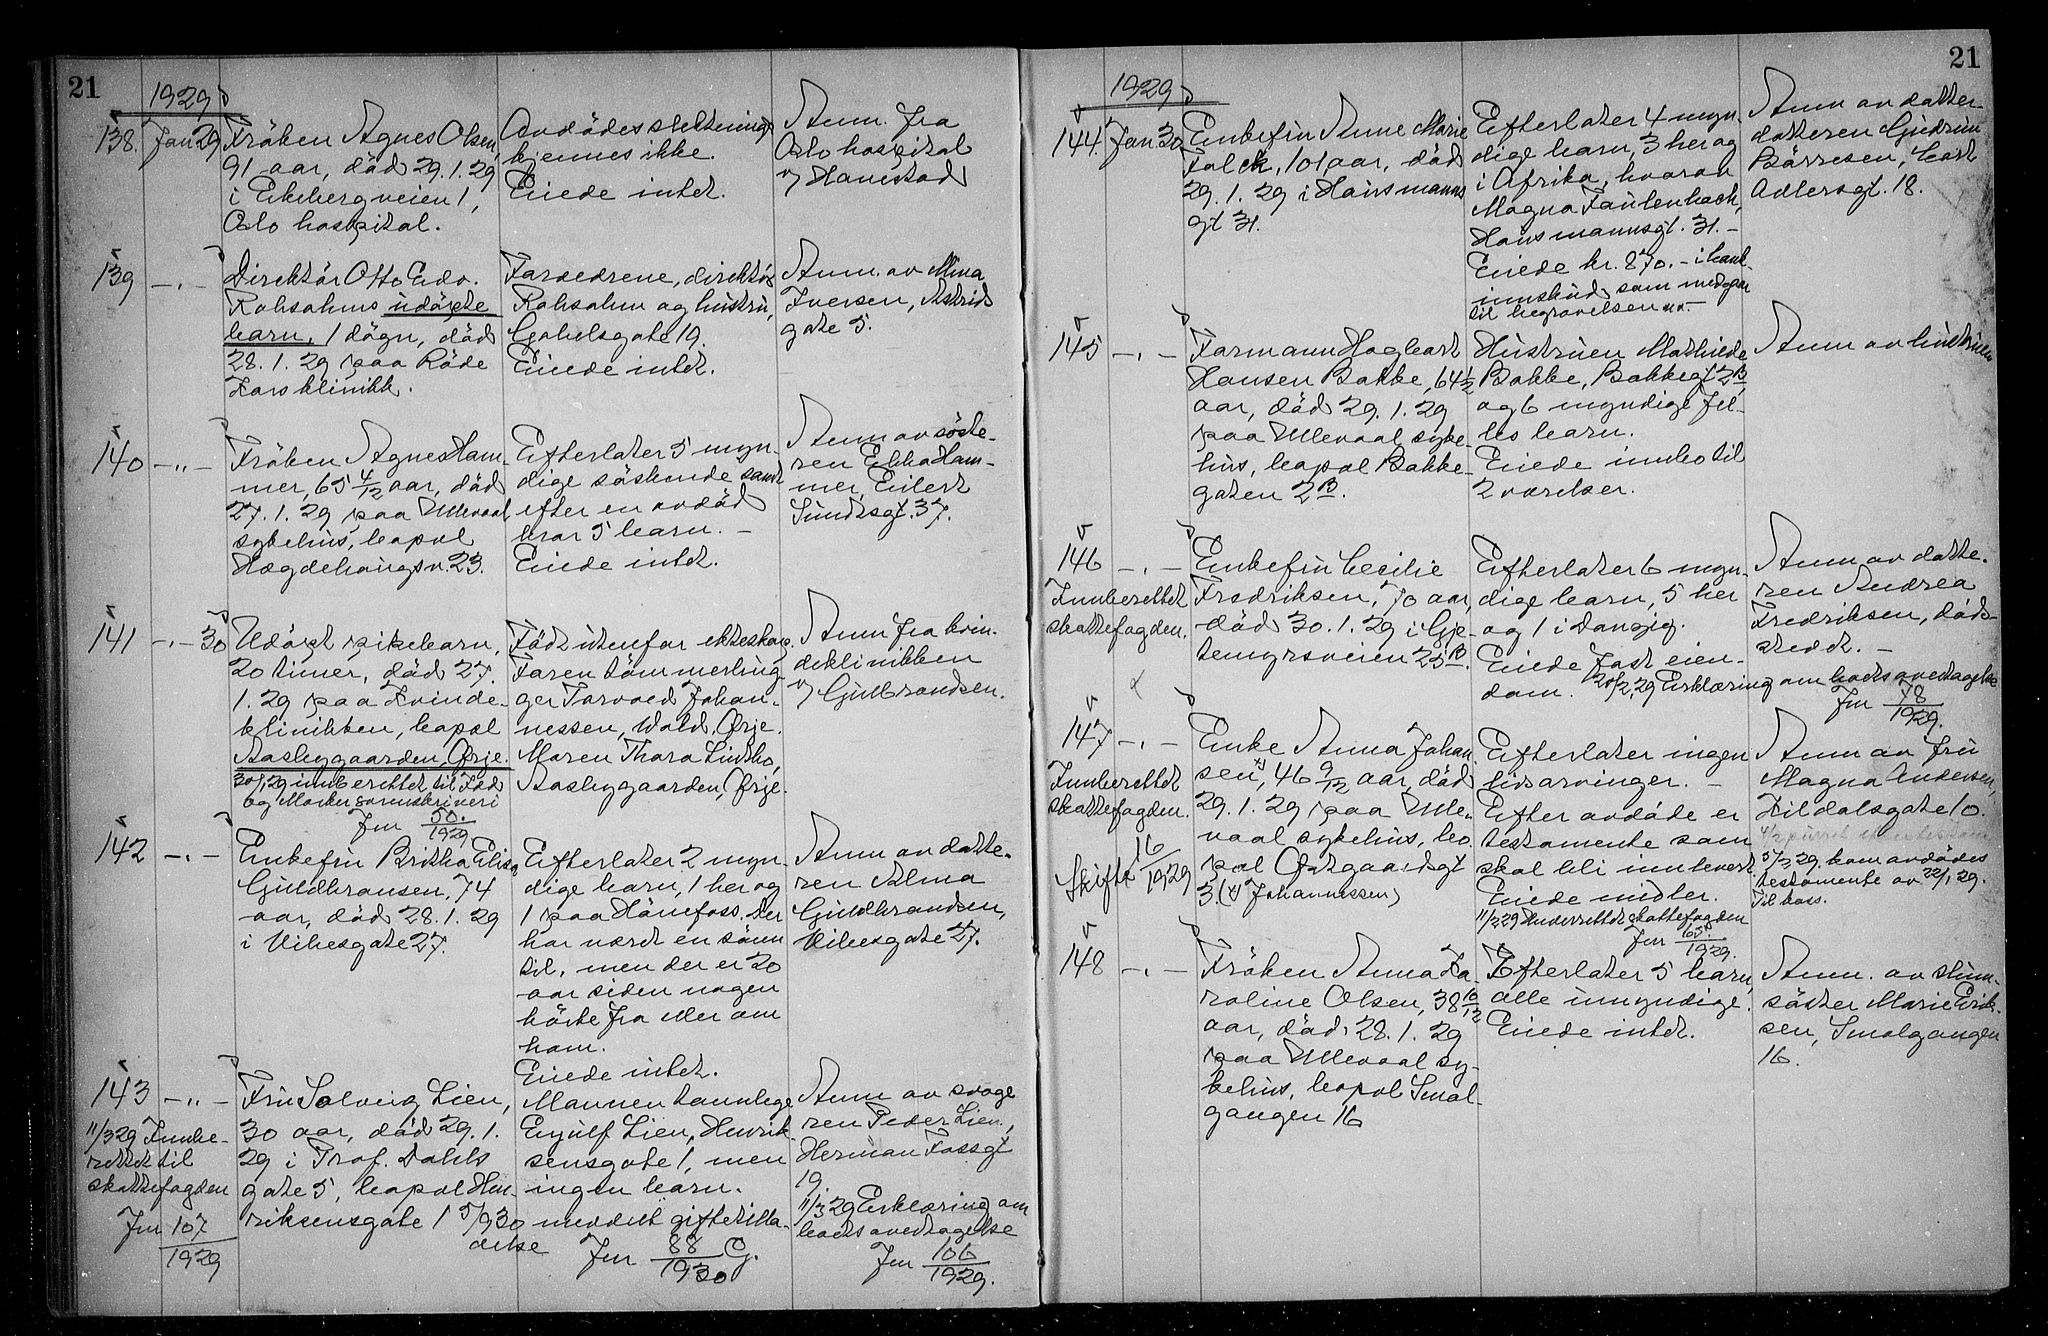 21
1929
138. Jan 29 Fröken Agnes Olsen,
91 aar, död 29.1.29
i Ekebergveien 1,
Oslo hospital.
Avdödes slektninge
kjennes ikke.
Eiede intet.
Anm. fra
Oslo hospital
v/ Hanestad
139 -„- Direktör Otto Edv.
Robsahms udöpte
barn, 1 dögn, död
28.1.29 paa Röde
Kors klinikk.
Forældrene, direktör
Robsahm og hustru,
Gabelsgate 19.
Eiede intet.
Anm. av Mina
Iversen, Astrids
gate 5.
140 -„- Fröken Agnes Ham-
mer, 65 4/12 aar, död
27.1.29 paa Ullevaal
sykehus, bopæl
Hægdehaugsv. 23.
Efterlater 5 myn-
dige söskende samt
efter en avdöd
bror 5 barn. -
Eiede intet.
Anm av söste-
ren Ebba Ham-
mer, Eilert
Sundtsgt. 37.
141 -„- 30 Udöpt pikebarn,
20 timer, död 27.
1.29 paa Kvinde-
klinikken, bopæl
Aaslyggaarden, Ørje.
30/1 29 innberettet til
og Marker sorenskriveri
Jnr 50./1929
Födt utenfor ekteskap.
Faren tömmerhug-
ger Torvald Johan-
nessen, Wold, Ørje.
Moren Thora Lindbo,
Aaslyggaarden, Ørje.
Anm fra kvin-
deklinikken
v/ Gulbrandsen.
142 -„- Enkefru Britha Elise
Guldbransen, 74
aar, död 28.1.29
i Vibesgate 27.
Efterlater 2 myn-
dige barn, 1 her og
1 paa Hönefoss. Der
har været en sönn
til, men der er 20
aar siden nogen
hörte fra eller om
ham.
Eiede intet.
Anm av datte-
ren Alma
Guldbrandsen,
Vibesgate 27.
143 -„- Fru Solveig Lien,
30 aar, död 29.1.
29 i Prof. Dahls
gate 5, bopæl Hen-
riksensgate 1
11/3 29 Innbe-
rettet til
skattefogden
Jnr 107/1929
Mannen tannlege
Eyulf Lien, Henrik-
sensgate 1, men
ingen barn.
5/9 30 meddelt giftetilla-
delse Jnr 88/1930
Anm av svoge
ren Peder Lien,
Herman Fossgt
19.
11/3 29 Erklæring om
boets overtagelse
Jnr 106/1929.
21
1929
144. Jan. 30 Enkefru Anne Marie
Falck, 101 aar, död
29.1.29 i Hausmanns
gt 31.
Efterlater 4 myn-
dige barn, 3 her og
i Afrika, hvorav
Magna Faulenbach,
Hausmannsgt. 31. -
Eiede kr. 870.- i bank-
innskud som medgaar
til begravelsen
Anm av datter-
datteren Gudrun
Börresen, Cort
Adlersgt. 18.
145 -„- Formann Hagbart
Hansen Bakke, 64 1/2
aar, död 29.1.29
paa Ullevaal syke-
hus, bopæl Bakke-
gaten 2 B.
Hustruen Mathilde
Bakke, Bakkegt 2 B,
og 6 myndige fel-
les barn.
Eiede innbo til
2 værelser.
Anm av hustruen
146 -„- Enkefru Cecilie
Fredriksen, 70 aar,
död 30.1.29 i Gje-
temyrsveien 25 B.
Innberettet
skattefogden.
Efterlater 6 myn-
dige barn, 5 her
og 1 i Danzig.
Eiede fast eien-
dom. 20/2 29 Erklæring om boets overtagelse
Jnr 78/1929.
Anm av datte-
ren Andrea
Fredriksen, döds-
stedet. -
147 -„- Enke Anna Johan
sen x), 46 9/12 aar, död
29.1.29 paa Ulle-
vaal sykehus, bo
pæl Østgaardsgt
3. (x) Johannessen)
Innberettet
skattefogden.
Skifte 16/1929
Efterlater ingen
livsarvinger. -
Efter avdöde er
testamente som
skal bli innlevert.
Eiede midler.
11/2 29 Underrettet skattefogden
Jnr 65./1929.
Anm av fru
Magna Andersen,
Lildalsgate 10.
5/2 29 kom avdödes
testamente av 22/1 29.
Til boss.
148 -„- Fröken Anna Ka
roline Olsen, 38 10/12
aar, död 28.1.29
paa Ullevaal sy-
kehus, bopæl Smal-
gangen 16
Efterlater 5 barn,
alle umyndige.
Eiede intet.
Anm. av stinn-
söster Marie Erik-
sen, Smalgangen
16.